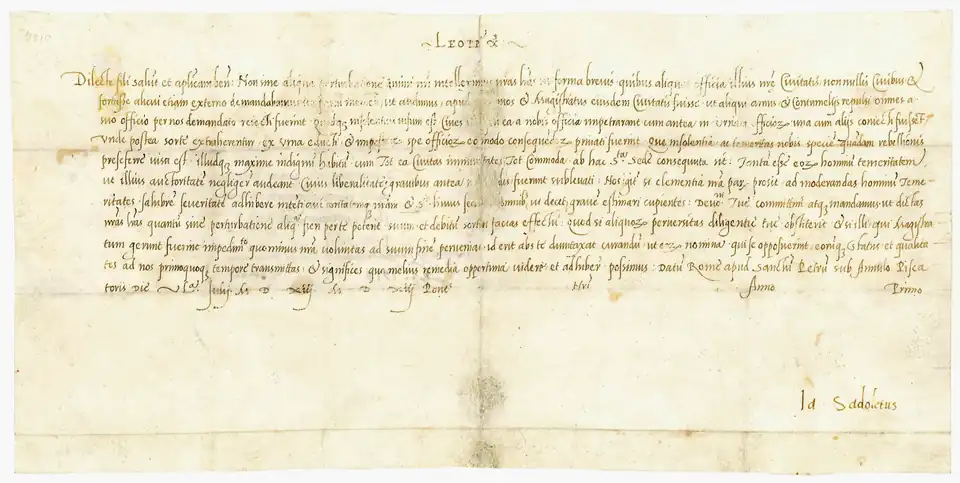 Leo pp x
Dilecte fili salut et aplicam ben: Non sine aliqua perturbatione animi nri intelleximus nras has in forma brevis quibus aliqua officia illius nre Civitatis nonnullis Civibus &
fortasse alicui etiam externo demandaramus ut audimus apud & Magistratus eiusdem Civitatis fuisse ut aliqui armis & Contumelijs repulsi omnes a
suo officio per nos demandato reiecti fuerint visum est Cives ea a nobis officia impetrarant cum antea in Urna officioz una cum alijs coniecti fuissent
unde postea sorte extraherentur ex urna educti & spe officioz commodo consequendoz privati fuerint Que insolentia ac temeritas nobis speciem quandam rebellionis
preseferre visa est illudqz maxime indignum habitum cum Tot ea Civitas immunitates Tot Commoda ab hac Sta Sede consequuta sit: Tanta esse eoz hominum temeritatem
ut illius auctoritatem negligere audeant Cuius liberalitate gravibus antea fuerint sublevati: Nos igit si clementia nra paz prosit ad moderandas hominum Teme-
ritates salubrem severitatem adhibere auctoritatem nram & Ste huius ut decet grave estimari cupientes: Tue committimus atqz mandamus ut dictas
nras has quantum sine perturbatione aliqa fieri poterit suum et debitum sortiri facias effectum: quod si aliquoz perversitas diligentie tue obstiterit & si illi qui Magistra
tum gerunt fuerint impedimto quominus nra voluntas ad suum finem perveniat id erit abs te dumtaxat curandum ut eoz nomina qui se opposuerint eorumqz Gradus et qualita
tes ad nos primoquoqz tempore transmittas & significes quo melius remedia opportuna videre et adhibere possimus: Datum Rome apud Sanctum Petrum sub Annulo Pisca
toris Die Anno Primo
Ia Sadoletus